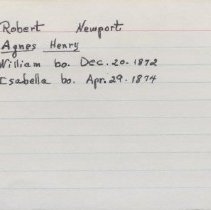 Robert Newport
Agnes Henry
William bo. Dec. 20. 1872
Isabella bo. Apr. 29. 1874